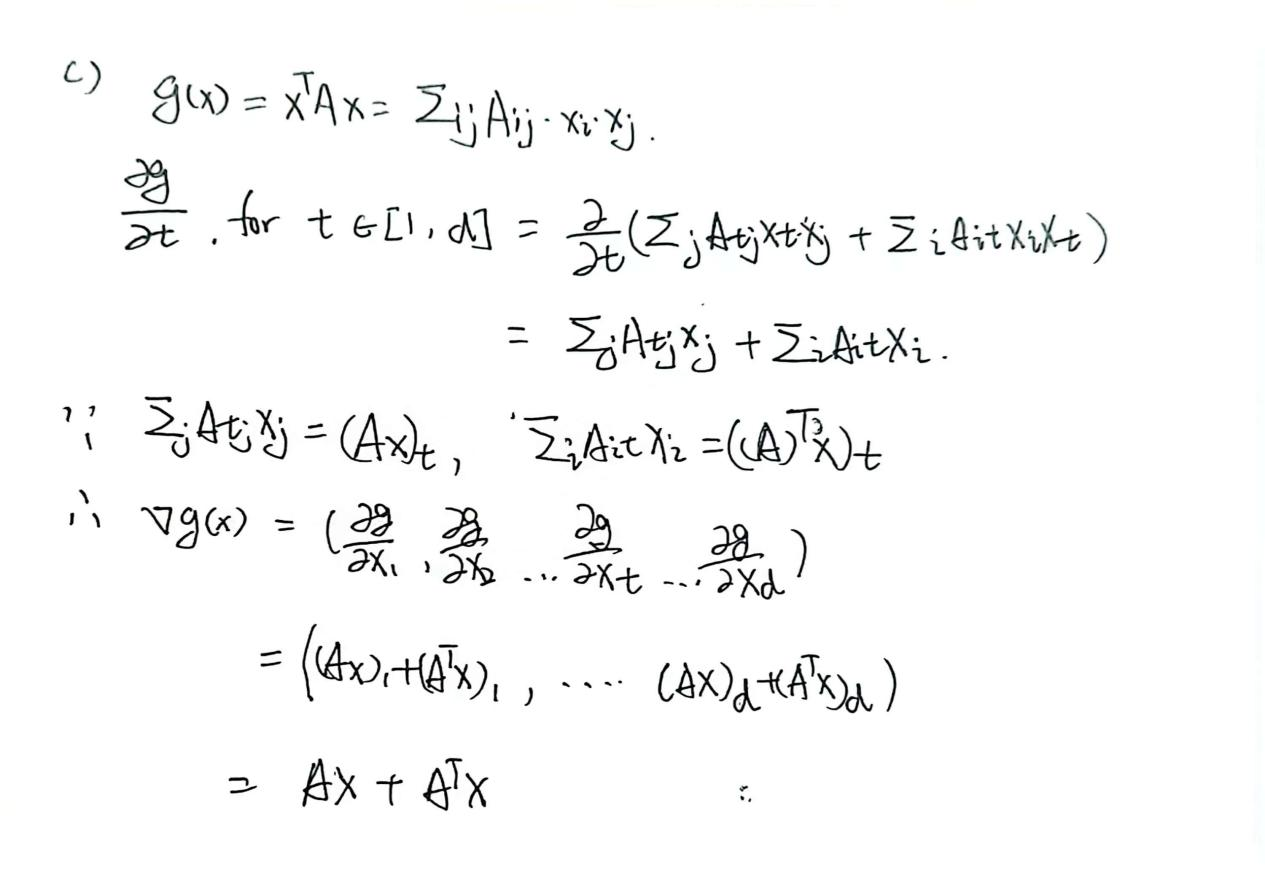 c) g(x) = xᵀAx = Σij Aij · xi · xj .
∂g/∂t , for t ∈ [1, d] = ∂/∂t (Σj Atj xt xj + Σi Ait xi xt)
= Σj Atj xj + Σi Ait xi .
∵ Σj Atj xj = (Ax)t , Σi Ait xi = ((A)ᵀx)t
∴ ∇g(x) = (∂g/∂x1 , ∂g/∂x2 ... ∂g/∂xt ... ∂g/∂xd)
= ((Ax)1 + (Aᵀx)1 , .... (Ax)d + (Aᵀx)d)
= Ax + Aᵀx